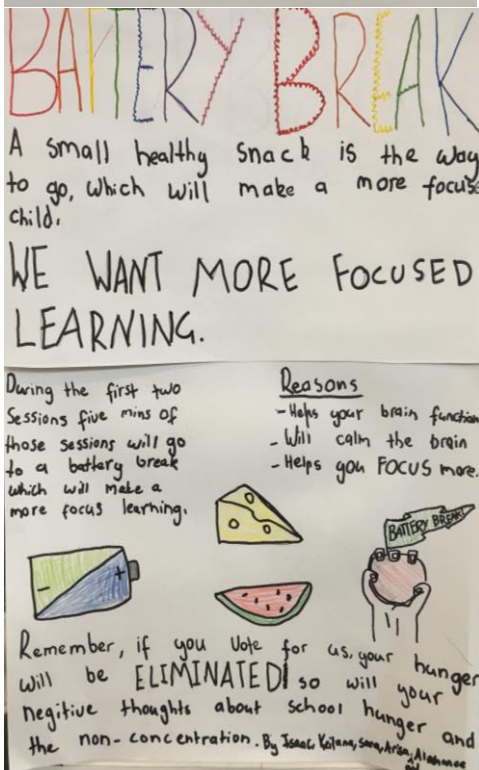 BATTERY BREAK
A small healthy snack is the way
to go, which will make a more focuse
child.
WE WANT MORE FOCUSED
LEARNING.
During the first two
Sessions five mins of
those sessions will go
to a battery break
which will make a
more focus learning.
Reasons
- Helps your brain function
- Will calm the brain
- Helps you FOCUS more.
- +
BATTERY BREAK
Remember, if you Vote for us, your hunger
will be ELIMINATED! so will your
negitive thoughts about school hunger and
the non-concentration. By Isaac, Sara,